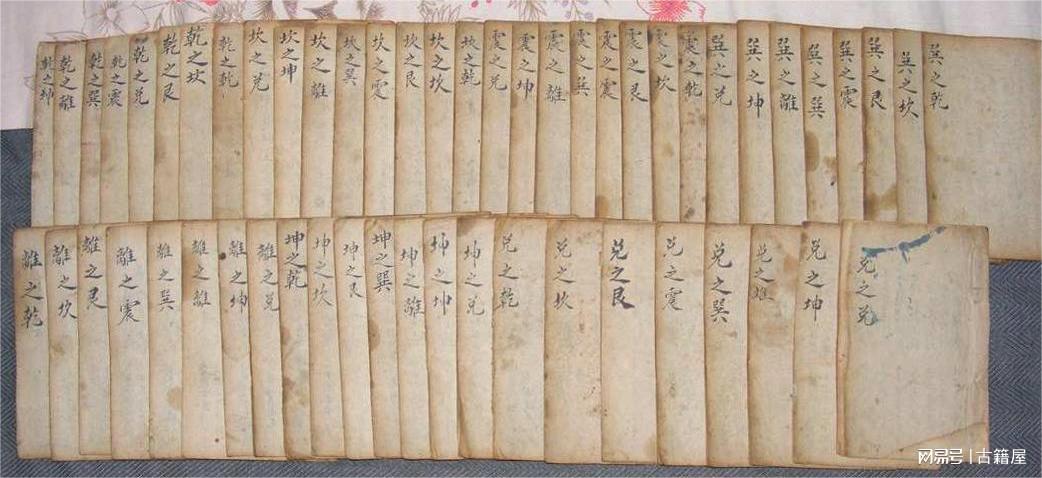 乾之坤
乾之離
乾之巽
乾之震
乾之兑
乾之艮
乾之坎
乾之乾
坎之兑
坎之坤
坎之離
坎之巽
坎之震
坎之艮
坎之坎
坎之乾
震之兑
震之坤
震之離
震之巽
震之震
震之艮
震之坎
震之乾
巽之兑
巽之坤
巽之離
巽之巽
巽之震
巽之艮
巽之坎
巽之乾
離之乾
離之坎
離之艮
離之震
離之巽
離之離
離之坤
離之兑
坤之乾
坤之坎
坤之艮
坤之巽
坤之離
坤之坤
坤之兑
兑之乾
兑之坎
兑之艮
兑之震
兑之巽
兑之離
兑之坤
兑之兑
网易号 | 古籍屋